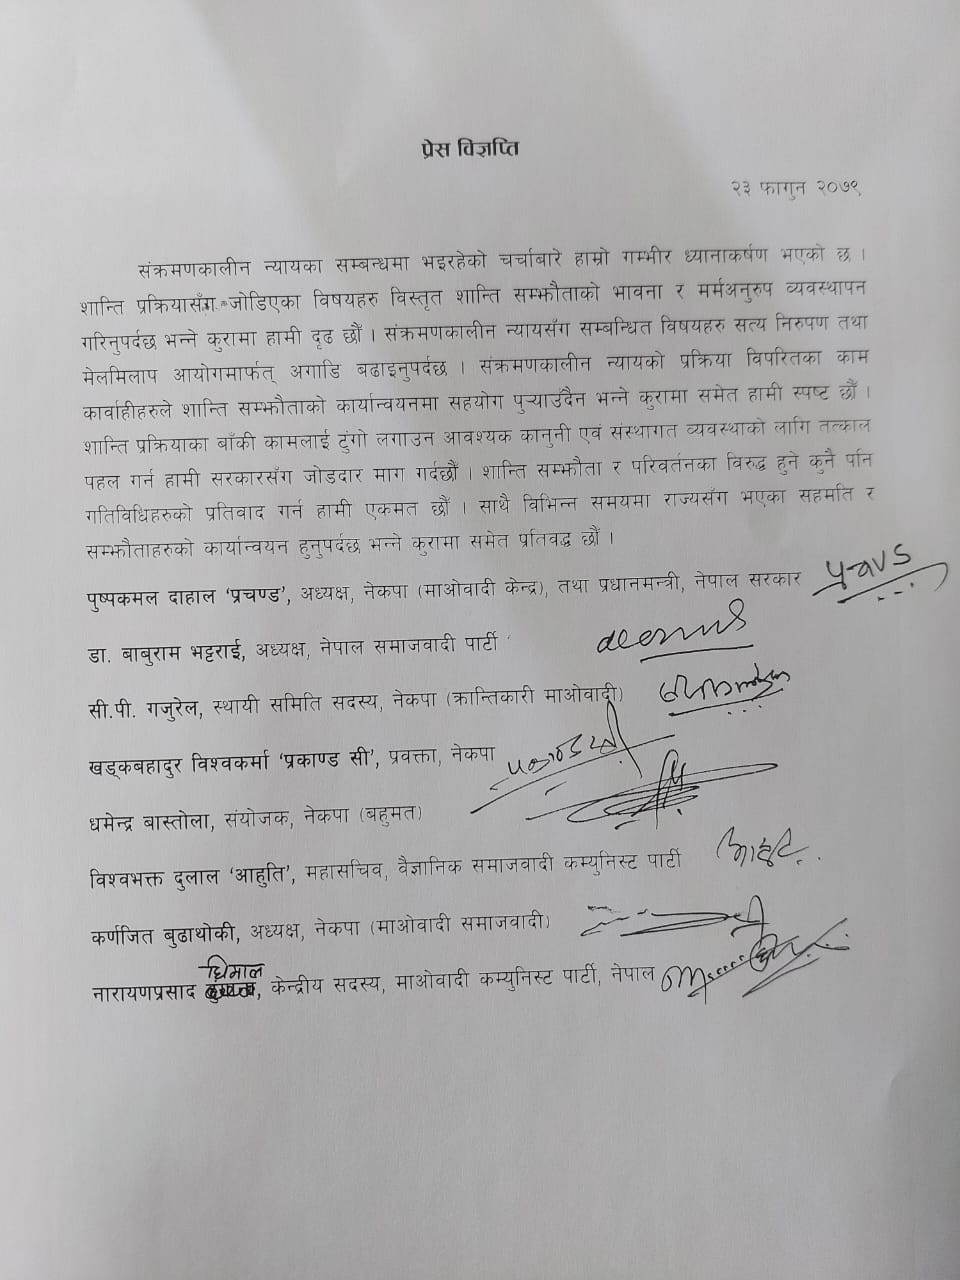 प्रेस विज्ञप्ति
२३ फागुन २०७९
संक्रमणकालीन न्यायका सम्बन्धमा भइरहेको चर्चाबारे हाम्रो गम्भीर ध्यानाकर्षण भएको छ ।
शान्ति प्रक्रियासँग जोडिएका विषयहरु विस्तृत शान्ति सम्झौताको भावना र मर्मअनुरुप व्यवस्थापन
गरिनुपर्दछ भन्ने कुरामा हामी दृढ छौं । संक्रमणकालीन न्यायसँग सम्बन्धित विषयहरु सत्य निरुपण तथा
मेलमिलाप आयोगमार्फत् अगाडि बढाइनुपर्दछ । संक्रमणकालीन न्यायको प्रक्रिया विपरितका काम
कार्वाहीहरुले शान्ति सम्झौताको कार्यान्वयनमा सहयोग पुऱ्याउँदैन भन्ने कुरामा समेत हामी स्पष्ट छौं ।
शान्ति प्रक्रियाका बाँकी कामलाई टुंगो लगाउन आवश्यक कानुनी एवं संस्थागत व्यवस्थाको लागि तत्काल
पहल गर्न हामी सरकारसँग जोडदार माग गर्दछौं । शान्ति सम्झौता र परिवर्तनका विरुद्ध हुने कुनै पनि
गतिविधिहरुको प्रतिवाद गर्न हामी एकमत छौं । साथै विभिन्न समयमा राज्यसँग भएका सहमति र
सम्झौताहरुको कार्यान्वयन हुनुपर्दछ भन्ने कुरामा समेत प्रतिवद्ध छौं ।
पुष्पकमल दाहाल ‘प्रचण्ड’, अध्यक्ष, नेकपा (माओवादी केन्द्र), तथा प्रधानमन्त्री, नेपाल सरकार
डा. बाबुराम भट्टराई, अध्यक्ष, नेपाल समाजवादी पार्टी
सी.पी. गजुरेल, स्थायी समिति सदस्य, नेकपा (क्रान्तिकारी माओवादी)
खड्कबहादुर विश्वकर्मा ‘प्रकाण्ड सी’, प्रवक्ता, नेकपा
धमेन्द्र बास्तोला, संयोजक, नेकपा (बहुमत)
विश्वभक्त दुलाल ‘आहुति’, महासचिव, वैज्ञानिक समाजवादी कम्युनिस्ट पार्टी आहुति
कर्णजित बुढाथोकी, अध्यक्ष, नेकपा (माओवादी समाजवादी)
नारायणप्रसाद घिमाल, केन्द्रीय सदस्य, माओवादी कम्युनिस्ट पार्टी, नेपाल